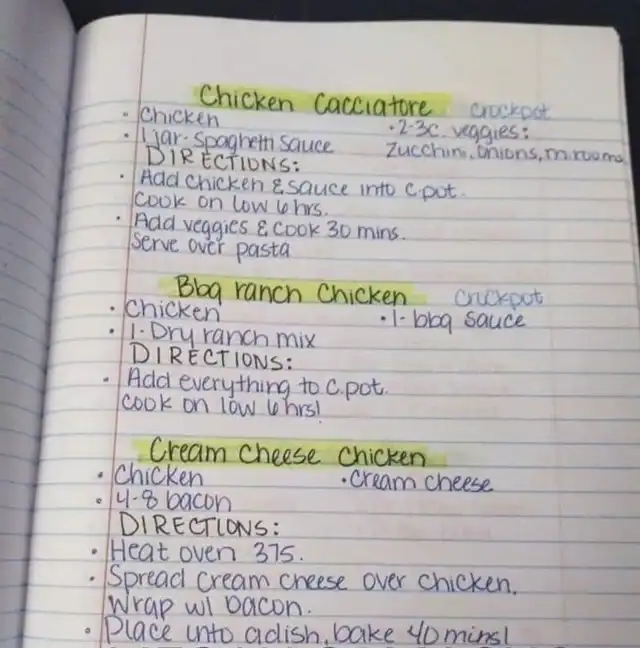 Chicken Cacciatore Crockpot
• Chicken • 2-3c. veggies:
• 1 jar- Spaghetti Sauce Zucchini, onions, m.rooms
DIRECTIONS:
• Add chicken & sauce into c.pot.
Cook on low 6 hrs.
• Add veggies & cook 30 mins.
Serve over pasta
Bbq ranch Chicken Crockpot
• Chicken • 1- bbq sauce
• 1- Dry ranch mix
DIRECTIONS:
• Add everything to c.pot.
Cook on low 6 hrs!
Cream cheese Chicken
• Chicken • Cream cheese
• 4-8 bacon
DIRECTIONS:
• Heat oven 375.
• Spread cream cheese over chicken.
Wrap w/ bacon.
• Place into a dish, bake 40 mins!